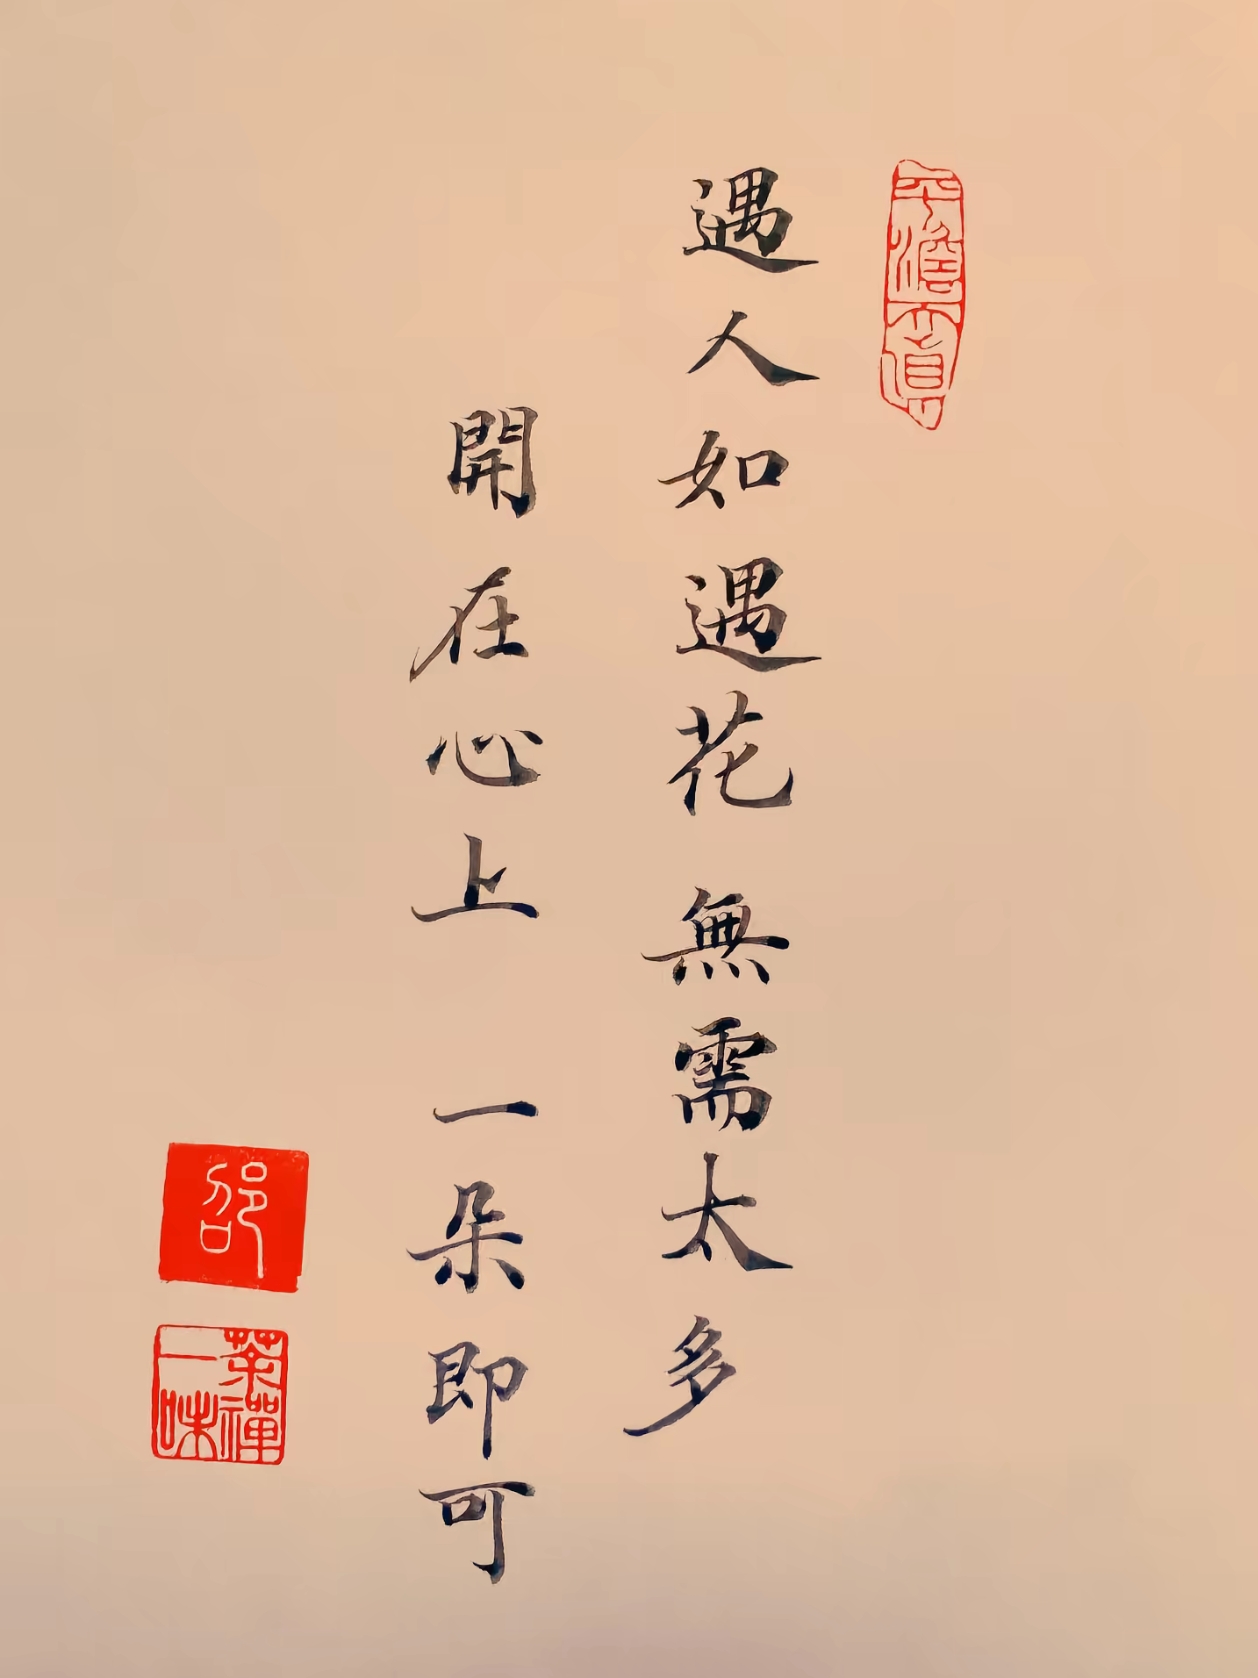 平澹天真
遇人如遇花 無需太多
開在心上 一朵即可
邵
茶禪一味